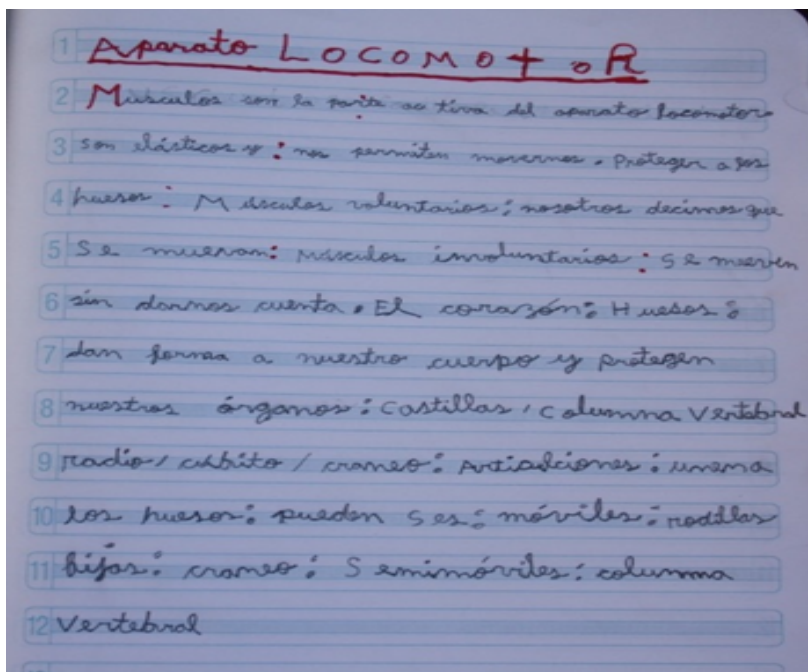 1 Aparato LOCOMOtoR
2 Musculos son la parte activa del aparato locomotor
3 son elásticos y : nos permiten movernos . Proteger a los
4 huesos : Músculos voluntarios : nosotros decimos que
5 Se muevan : Músculos involuntarios : Se mueven
6 sin darnos cuenta . El corazón : Huesos :
7 dan forma a nuestro cuerpo y protegen
8 nuestros órganos : Costillas / Columna Vertebral
9 radio / cúbito / craneo : : unena
10 los huesos : pueden Ses : móviles : rodillas
11 fijas : craneo : Semimóviles : columna
12 Vertebral